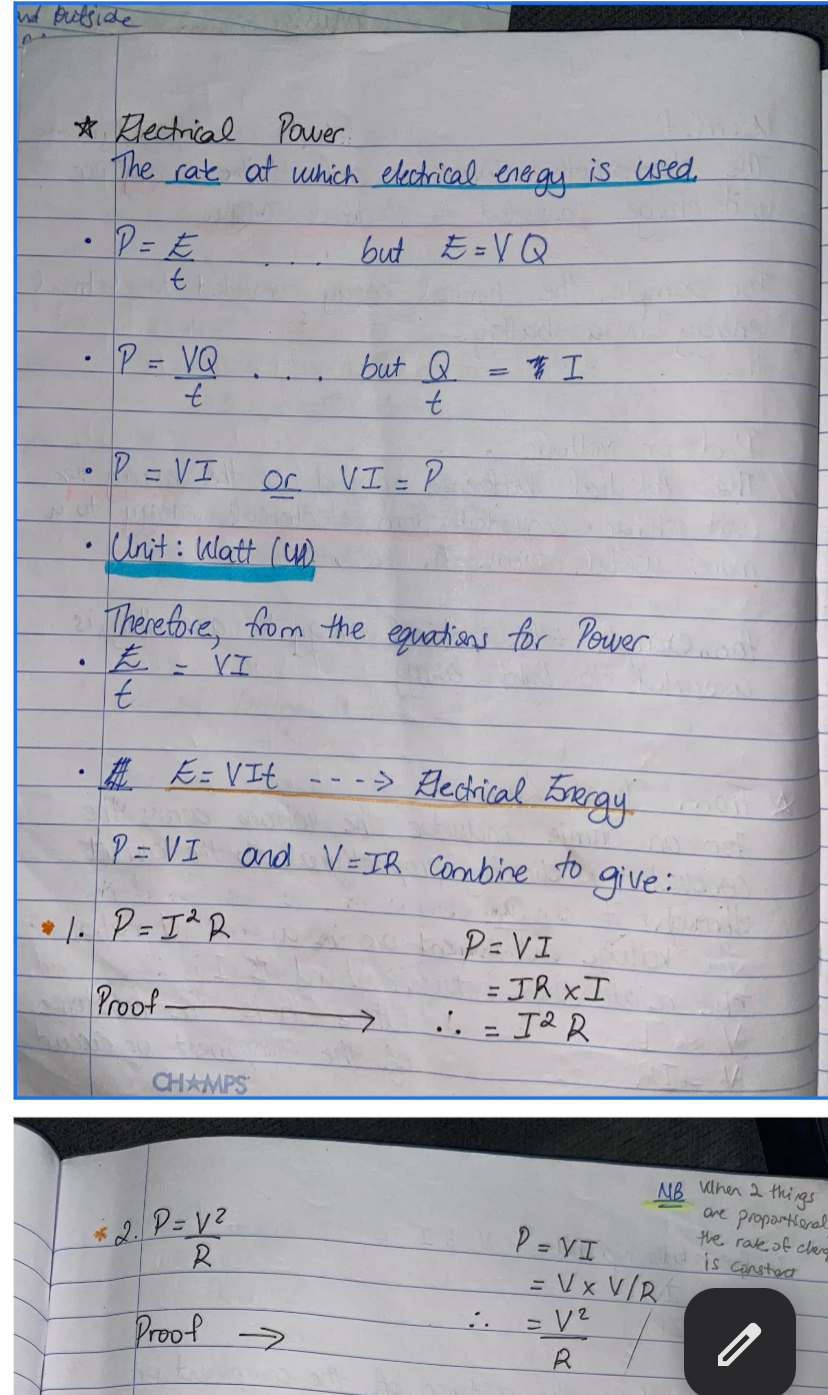 nd outside
☆ Electrical Power
The rate at which electrical energy is used.
• P = E/t .... but E = VQ
• P = VQ/t .... but Q/t = I
• P = VI or VI = P
• Unit: Watt (W)
Therefore, from the equations for Power
• E/t = VI
• E = VIt ----> Electrical Energy
P = VI and V = IR combine to give:
* 1. P = I² R
P = VI
= IR x I
Proof →
∴ = I² R
CH★MPS
NB When 2 things
are proportional
the rate of chang
is constant
* 2. P = V²/R
P = VI
= V x V/R
Proof →
∴ = V²/R